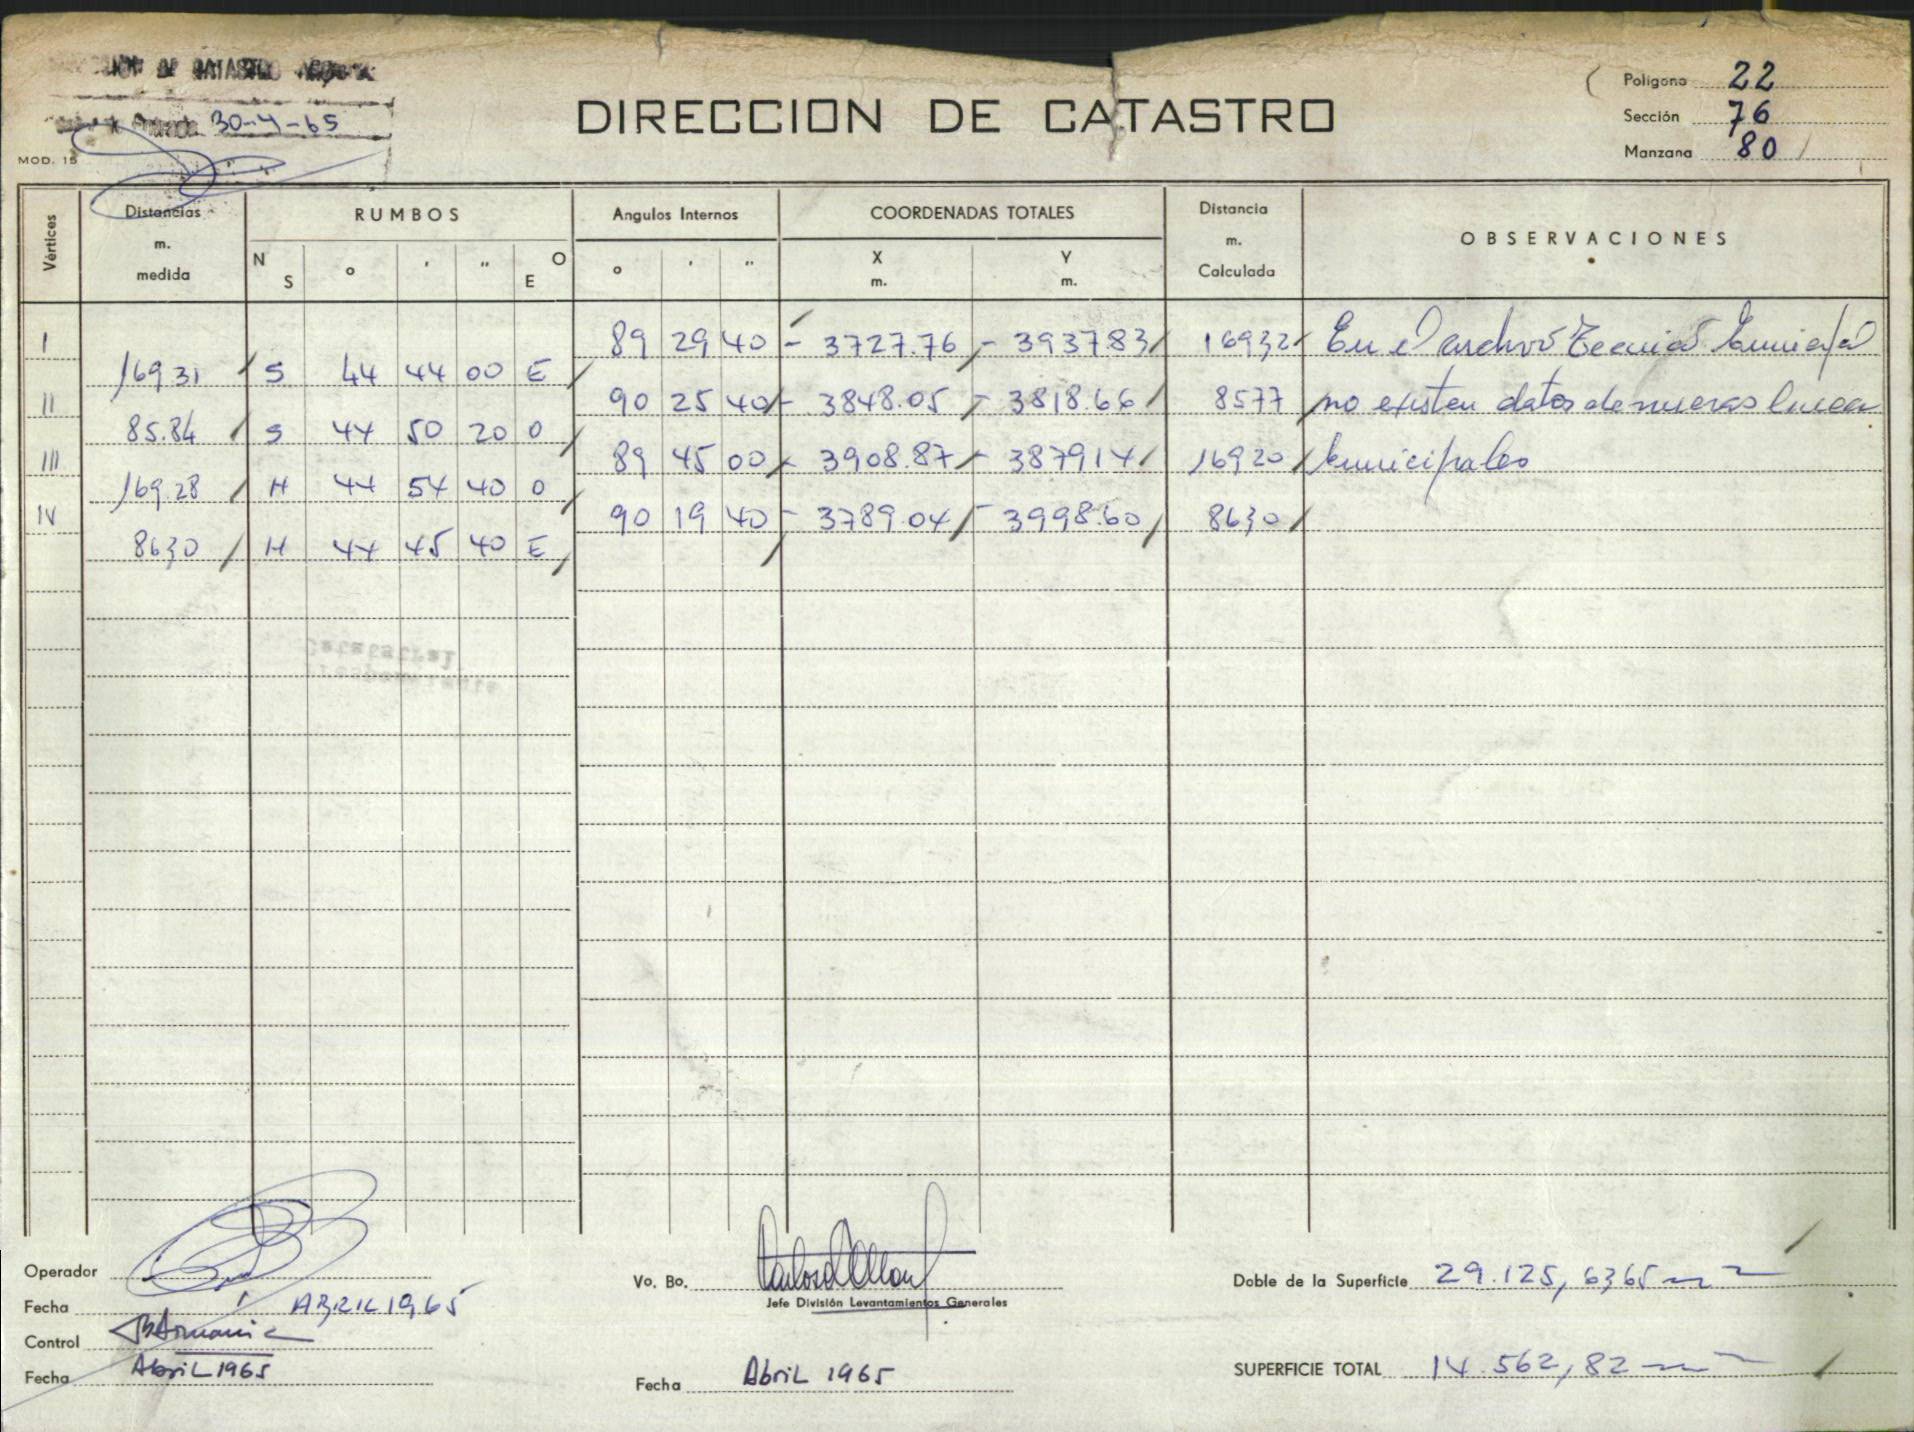 DE CATASTRO
30-4-65
MOD. 15
DIRECCION DE CATASTRO
Polígono 22
Sección 76
Manzana 80
Vértices
Distancias m. medida
RUMBOS
N S ° ' " O E
Angulos Internos
° ' "
COORDENADAS TOTALES
X m. Y m.
Distancia m. Calculada
OBSERVACIONES
I 89 29 40 - 3727.76 - 3937.83 169,32 En el archivo Tecnico Municipal
169.31 S 44 44 00 E
II 90 25 40 - 3848.05 - 3818.66 85.77 no existen datos de nuevas lineas
85.84 S 44 50 20 O
III 89 45 00 - 3908.87 - 3879.14 169.20 Municipales
169.28 N 44 54 40 O
IV 90 19 40 - 3789.04 - 3998.60 86,30
86,30 N 44 45 40 E
Catastral
Operador
Fecha ABRIL 1965
Control
Fecha Abril 1965
Vo. Bo.
Jefe División Levantamientos Generales
Fecha Abril 1965
Doble de la Superficie 29.125,6365 m²
SUPERFICIE TOTAL 14.562,82 m²